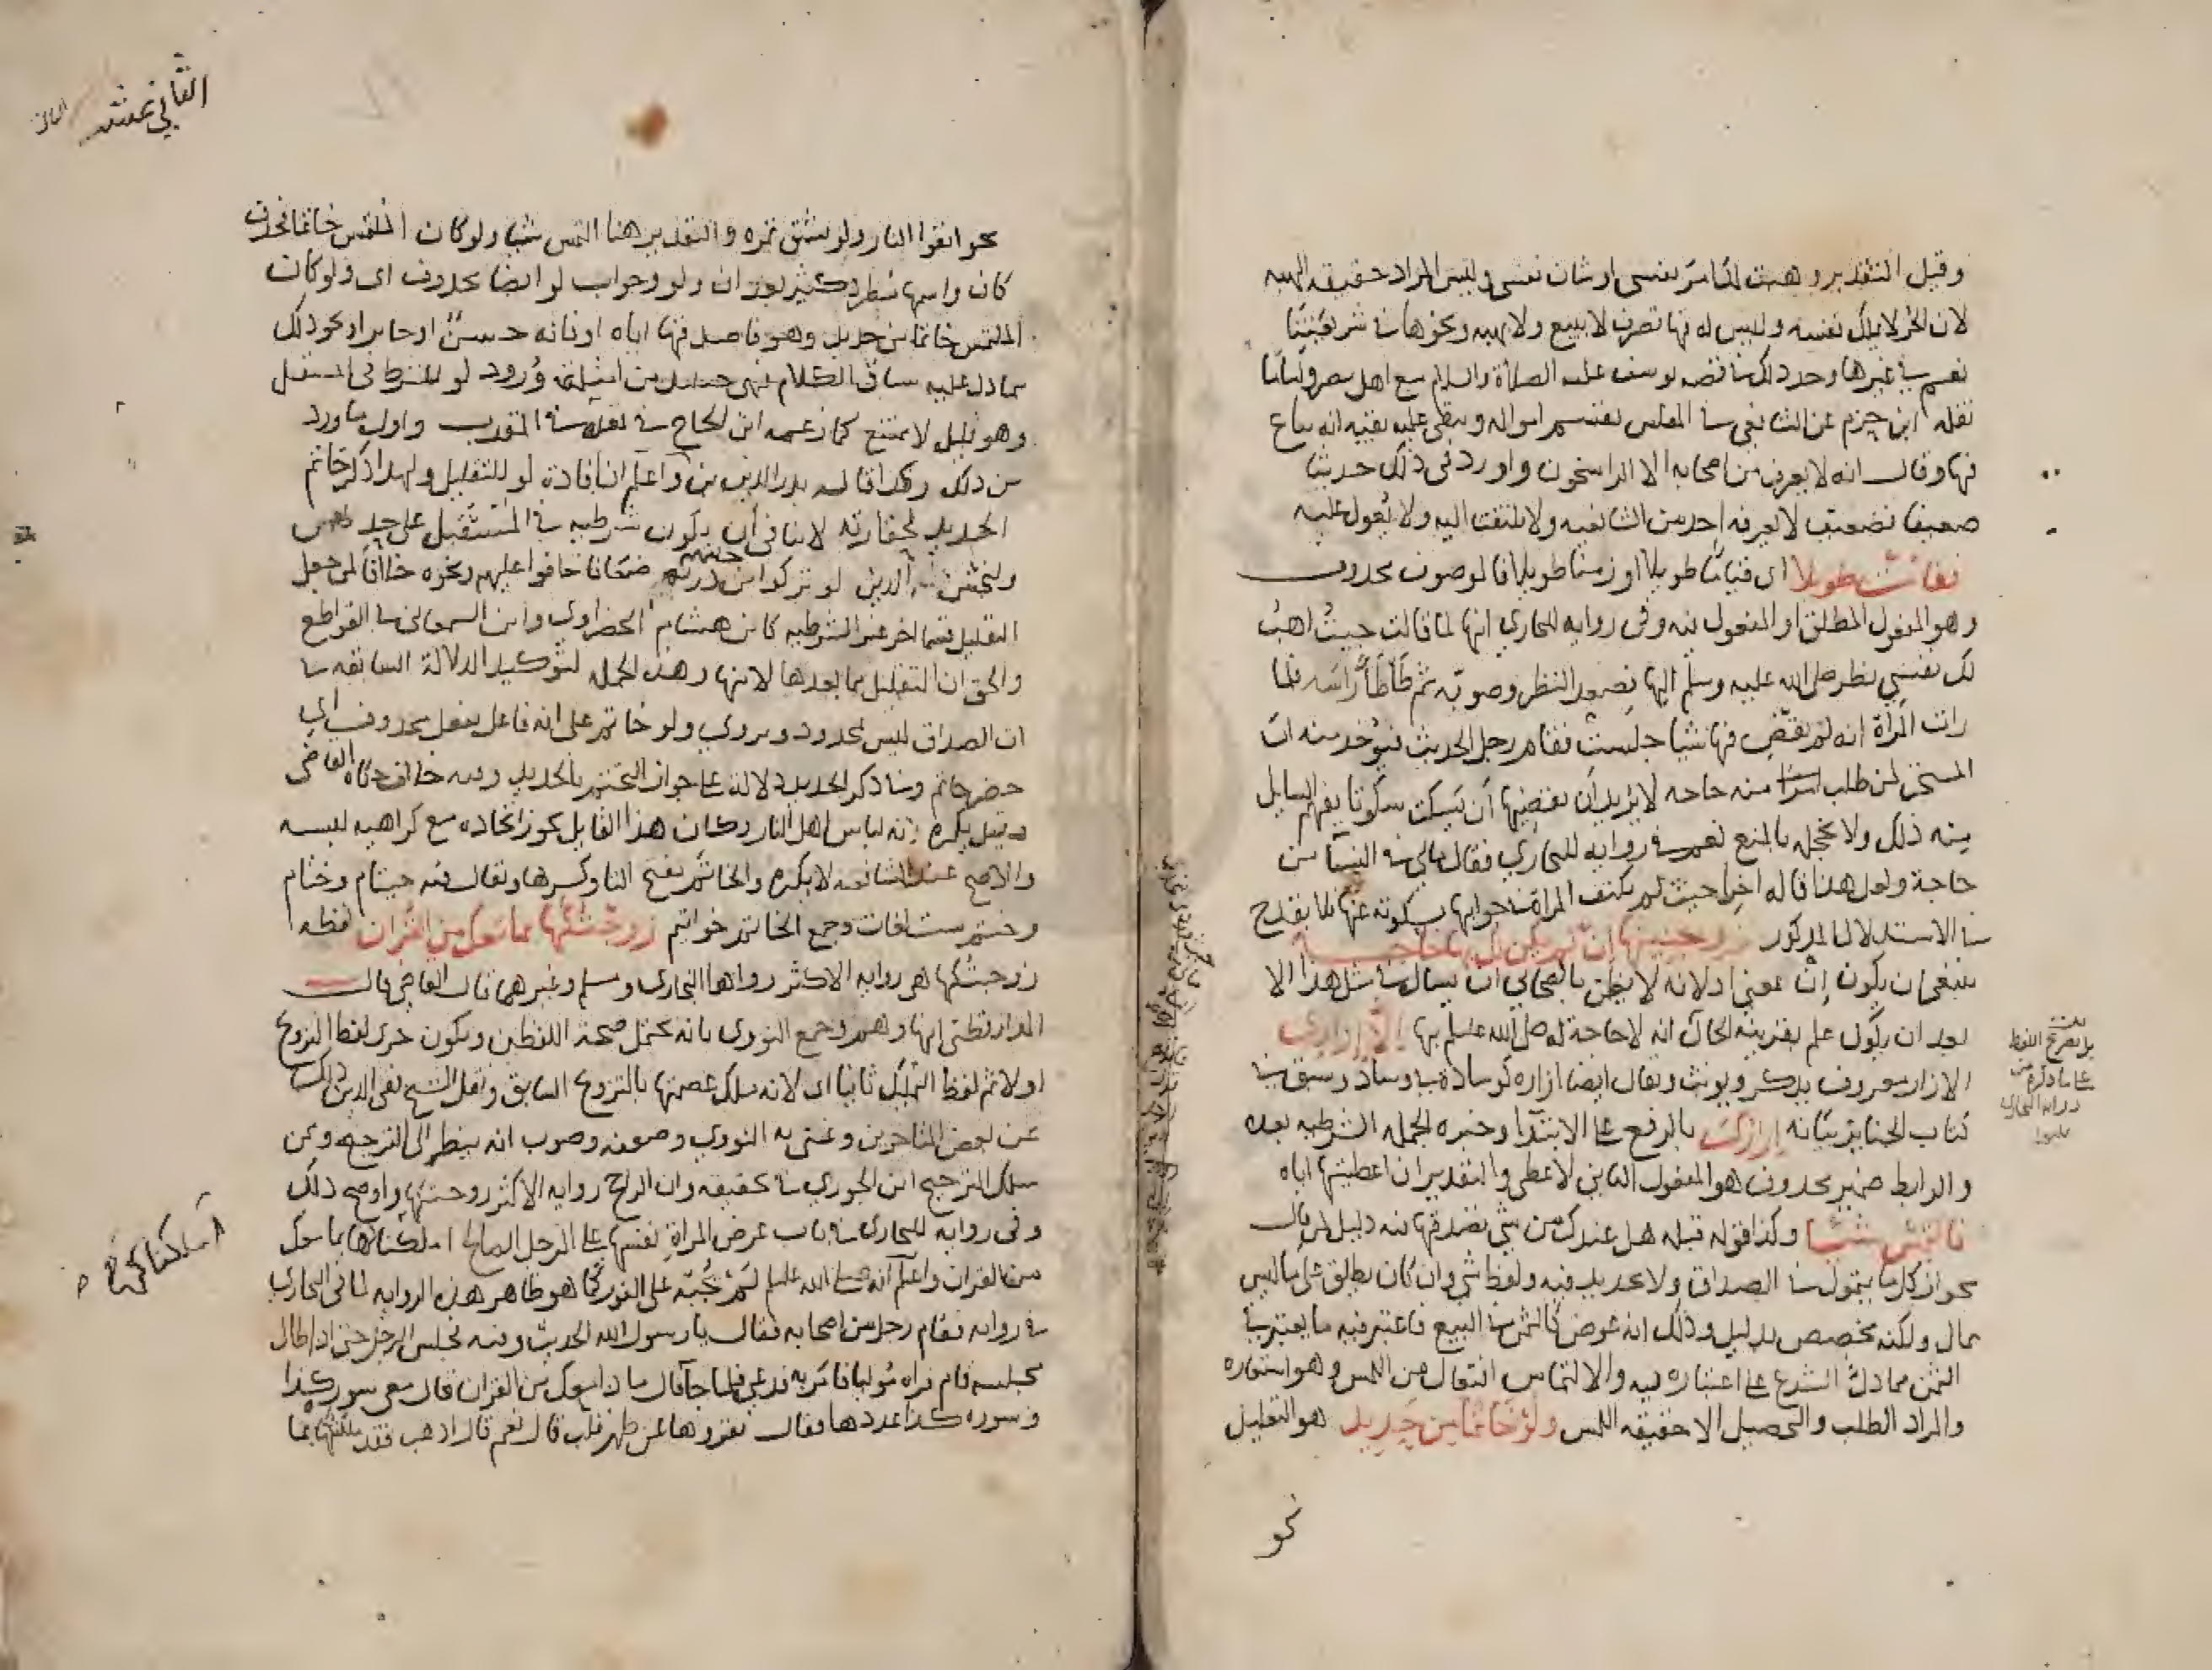 وقيل التقدير وهبت لك امر نفسى او شان نفسى وليس المراد حقيقه الهبه
لان الحر لا يملك نفسه وليس له فيها تصرف لا ببيع ولا بهبه ونحوها فى شريعتنا
نعم فى غيرها وحد ذلك فى قصه يوسف عليه الصلاة والسلام مع اهل مصر واما ما
نقله ابن حزم عن الشافعى فى المفلس تقسم امواله ويبقى عليه بقيه انه يباع
فيها وقال انه لا يعرف من اصحابه الا الراسخون واورد فى ذلك حديثا
ضعيفا فضعيف لا يعرفه احد من الشافعيه ولا يلتفت اليه ولا يعول عليه
فقامت طويلا اى قياما طويلا او زمنا طويلا فالموصوف محذوف
وهو المفعول المطلق او المفعول فيه وفى روايه للبخارى انها لما قالت جيت اهب
لك نفسي نظر صلى الله عليه وسلم اليها فصعد النظر وصوبه ثم طأطأ رأسه فلما
رات المراة انه لم يقض فيها شيا جلست فقام رجل الحديث فيوخذ منه ان
المستحق لمن طلب منه حاحه لا يريد ان يقضيها ان يسكت سكوتا يفهم السايل
منه ذلك ولا يخجله بالمنع نعم فى روايه للبخارى فقال مالى فى النسا من
حاجة ولعل هذا قاله اخرا حيث لم تكتف المراة فى جوابها بسكوته عنها فلا يقدح
فى الاستدلال المذكور زوجنيها ان لم يكن لك بها حاجه
ينبغى ان يكون ان بمعنى اذ لانه لا يظن بالصحابي ان يسال فى مثل هذا الا
بعد ان يكون علم بقرينه الحال انه لا حاجة له صلى الله عليه وسلم بها الا ازارى
الازار معروف يذكر ويونث ويقال ايضا ازاره كوسادة ووساد وسبق فى
كتاب الجنايز بيانه ازارك بالرفع على الابتدا وخبره الجمله الشرطيه بعده
والرابط ضمير محذوف هو المفعول الثاني لاعطى والتقدير ان اعطيتها اياه
فالتمس شيا وكذا قوله قبله هل عندك من شى تصدقها فيه دليل لمن قال
بجواز كل ما يتمول فى الصداق ولا تحديد فيه ولفظ شى وان كان يطلق على ما ليس
بمال ولكنه مخصص بدليل وذلك انه عوض كالثمن فى البيع فاعتبر فيه ما يعتبر فى
الثمن مما دل الشرع على اعتباره فيه والالتماس افتعال من اللمس وهو استعاره
والمراد الطلب والتحصيل لا حقيقه اللمس ولو خاتما من حديد هو التقليل
نحو
بل بصريح اللفظ
على ما ذكره من
روايه البخارى
الثاني عشر
نحو اتقوا النار ولو بشق تمره والتقدير هنا التمس شيا ولو كان الملتمس خاتما فحذف
كان واسمها مطرد كثير بعد ان ولو وجواب لو ايضا محذوف اى ولو كان
الملتمس خاتما من حديد وهو حاصل فيها اياه او فانه حسن او جايز او نحو ذلك
مما دل عليه سياق الكلام فهى حينئذ من امثلة ورود لو للشرط فى المستقبل
وهو قليل لا ممتنع كما زعمه ابن الحاج فى نقده على المقرب واول ما ورد
من ذلك وكذا قاله بدر الدين بن واعلم ان افادة لو للتقليل ولهذا ذكر خاتم
الحديد لحقارته لا ينافى ان يكون شرطيه فى المستقبل على حد
وليخش الذين لو تركوا من خلفهم ذرية ضعافا خافوا عليهم ونحوه خلافا لمن جعل
التقليل قسما اخر غير الشرطيه كابن هشام الخضراوى وابن السمعانى فى القواطع
والحق ان التقليل مما بعدها لا منها وهذه الجمله لتوكيد الدلالة السابقه فى
ان الصداق ليس بمحدود ويروى ولو خاتم على انه فاعل بفعل محذوف اى
حضر خاتم وفى ذكر الحديد دلالة على جواز التختم بالحديد وفيه خلاف حكاه القاضى
فقيل يكره لانه لباس اهل النار وكان هذا القايل يجوز اتخاذه مع كراهيه لبسه
والاصح عند الشافعيه لا يكره والخاتم بفتح التا وكسرها ويقال فيه خيتام وختام
وختم ست لغات وجمع الخاتم خواتم زوجتكها بما معك من القران لفظه
زوجتكها هى روايه الاكثر رواها البخارى ومسلم وغيرهما قال القاضى قال
الدارقطنى انها وهم وجمع النووى بانه يحتمل صحة اللفظين ويكون جرى لفظ التزويج
اولا ثم لفظ التمليك ثانيا اى لانه ملك عصمتها بالتزويج السابق ونقل الشيخ تقى الدين ذلك
عن بعض المتاخرين وعنى به النووى وضعفه وصوب انه ينظر الى الترجيح وممن
سلك الترجيح ابن الجوزى فى تحقيقه وان الراجح روايه الاكثر زوجتكها واوضح ذلك
وفى روايه للبخارى فى باب عرض المراة نفسها على الرجل الصالح املكناكها بما معك
من القران واعلم انه صلى الله عليه وسلم لم يجبه على الفور كما هو ظاهر هذه الروايه لما فى البخارى
فى روايه فقام رجل من اصحابه فقال يا رسول الله الحديث وفيه فجلس الرجل حتى اذا طال
مجلسه قام فراه موليا فامر به فدعى فلما جا قال ماذا معك من القران قال معى سورة كذا
وسوره كذا عددها فقال تقروها عن ظهر قلب قال نعم قال اذهب فقد ملكتكها بما
املكناكها